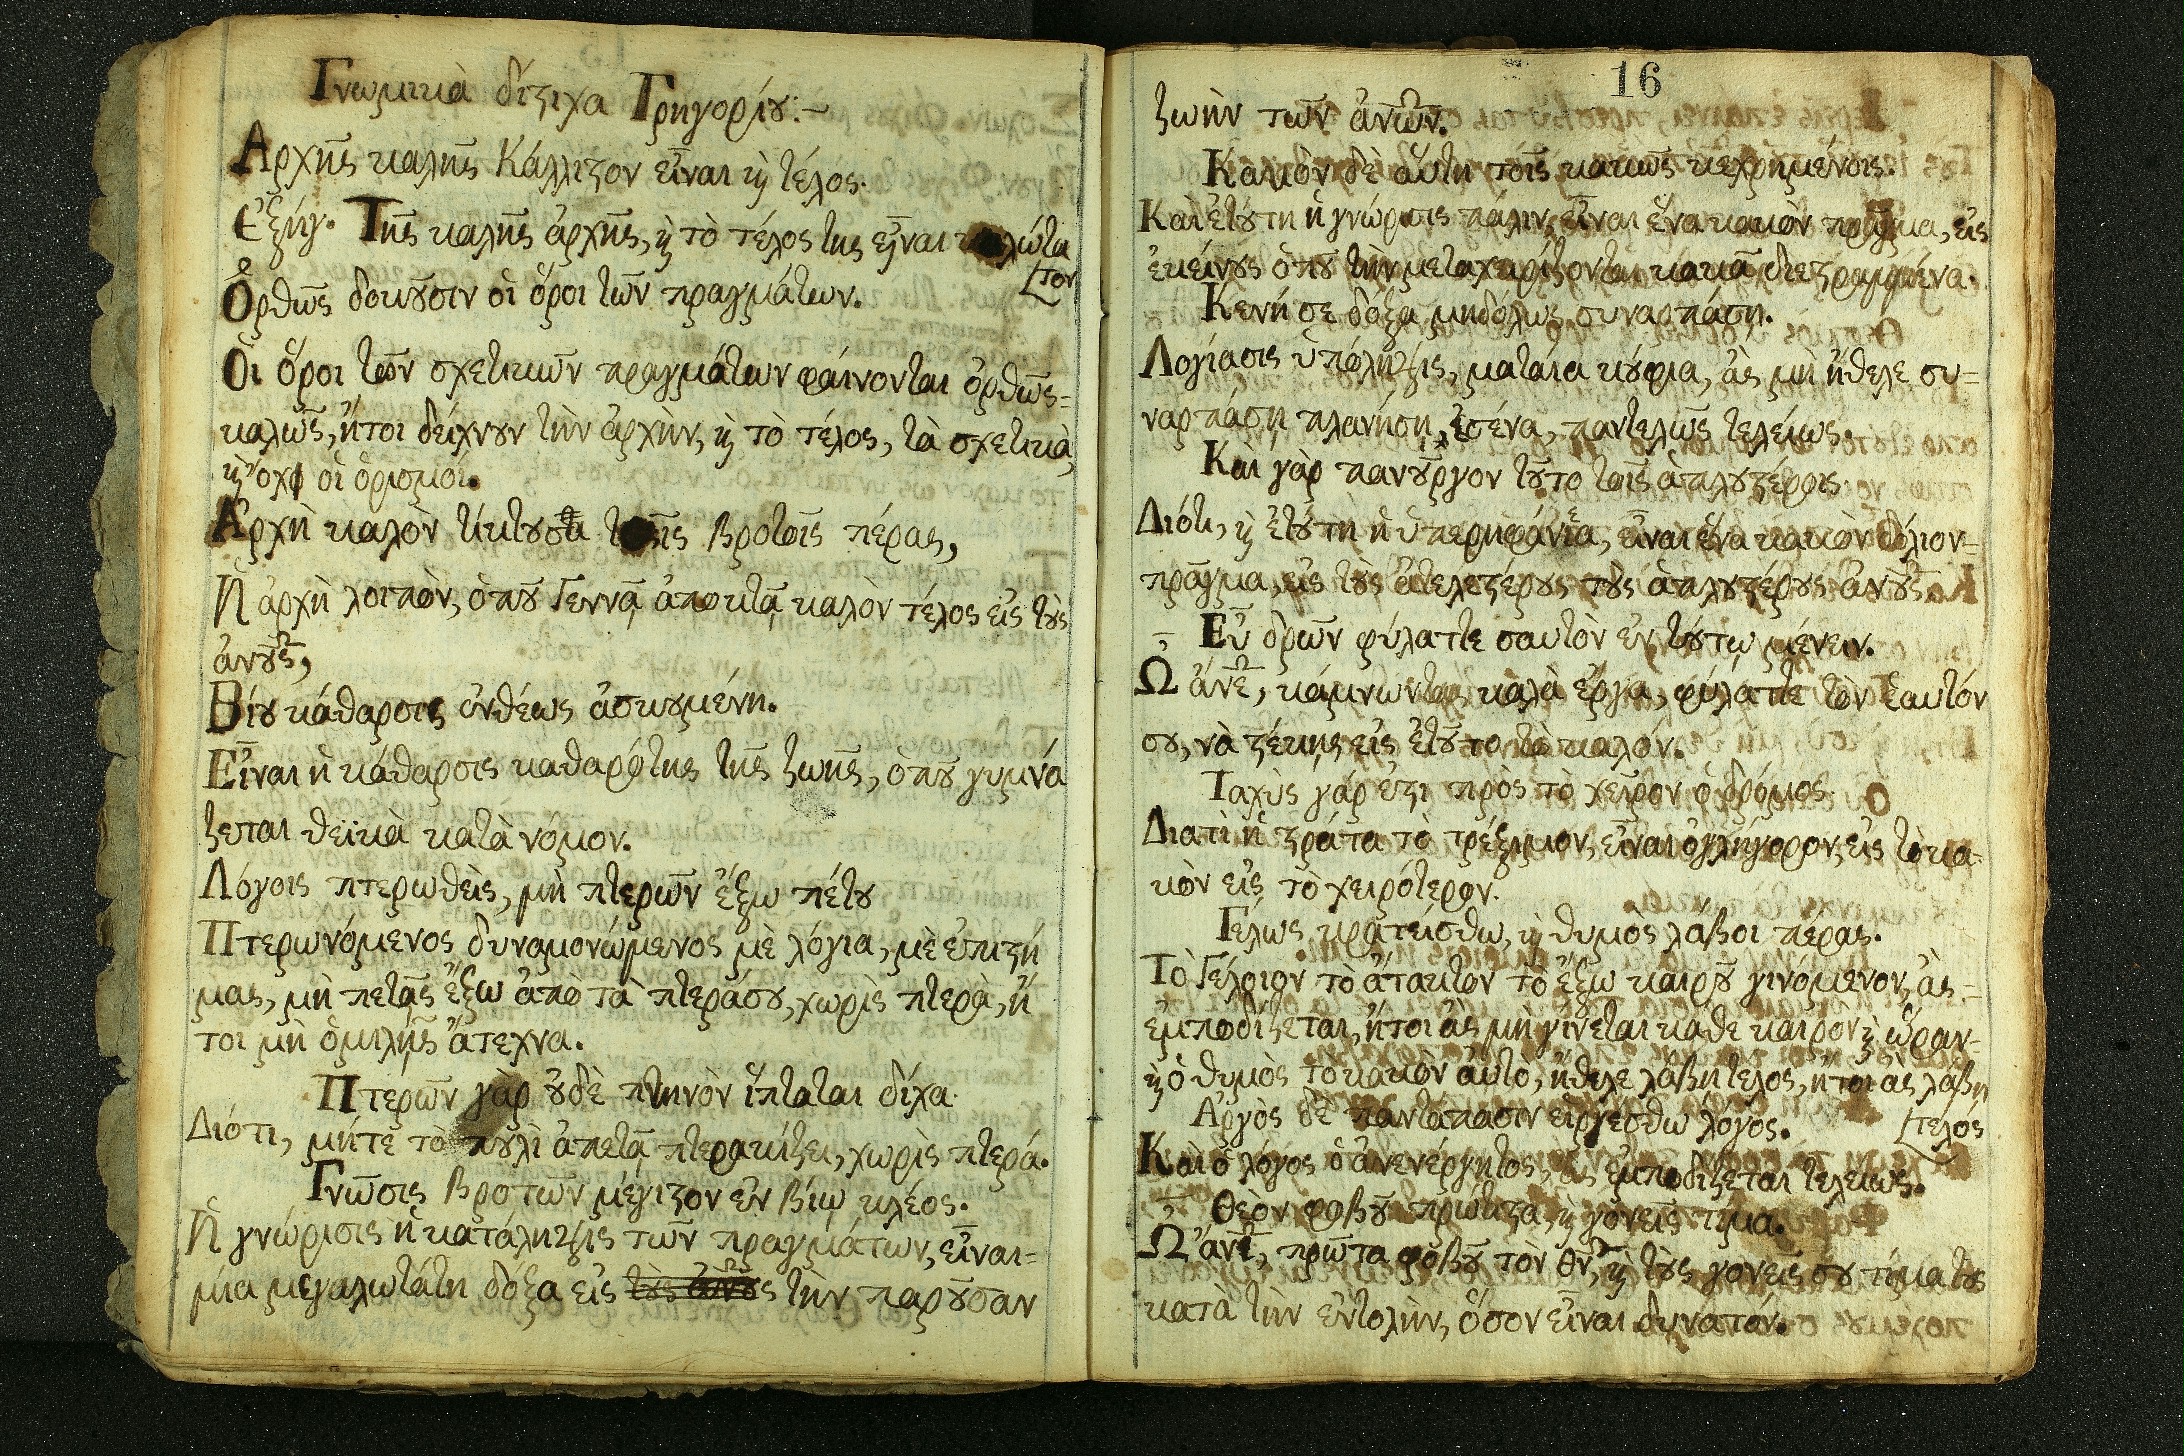 Γνωμικὰ δίϛιχα Γρηγορίȣ:-
Ἀρχῆς καλῆς κάλλιϛον εἶναι ϗ τέλος.
Ἐξήγ. Τῆς καλῆς ἀρχῆς, ϗ τὸ τέλος της εἶναι καλώτα
[τον
Ὀρθῶς δοκȣσιν οἱ ὅροι τῶν πραγμάτων.
Οἱ ὅροι τῶν σχετικῶν πραγμάτων φαίνονται ὀρθῶς=
καλῶς, ἤτοι δείχνȣν τὴν ἀρχὴν, ϗ τὸ τέλος, τὰ σχετικὰ,
ϗ ὄχι οἱ ὁρισμοί.
Ἀρχὴ καλὸν τίκτȣσα τοῖς βροτοῖς πέρας,
Ἡ ἀρχὴ λοιπὸν, ὁπȣ Γεννᾷ ἀποκτᾷ καλὸν τέλος εἰς τȣς
ἀνȣς,
Βίȣ κάθαρσις ἐνθέως ἀσκȣμένη.
Εἶναι ἡ κάθαρσις καθαρότης τῆς ζωῆς, ὁπȣ γυμνά
ζεται θεϊκὰ κατὰ νόμον.
Λόγοις πτερωθεὶς, μὴ πτερῶν ἔξω πέτȣ
Πτερωνόμενος δυναμονώμενος μὲ λόγια, μὲ ἐπιϛή
μας, μὴ πετᾷς ἔξω ἀπὸ τὰ πτεράσȣ, χωρὶς πτερὰ, ἤ
τοι μὴ ὁμιλῇς ἄτεχνα.
Πτερῶν γὰρ ȣδὲ πτηνὸν ἵπταται δίχα.
Διότι, μήτε τὸ πȣλὶ ἀπετᾷ πτερακίζει, χωρὶς πτερά.
Γνῶσις βροτῶν μέγιϛον ἐν βίῳ κλέος.
Ἡ γνώρισις ἡ κατάληψις τῶν πραγμάτων, εἶναι=
μία μεγαλωτάτη δόξα εἰς τȣς ἀνȣς τὴν παρȣσαν
16
ζωὴν τῶν ἀνων.
Κακὸν δὲ αὕτη τοῖς κακῶς κεχρημένοις.
Καὶ ἐτȣτη ἡ γνώρισις πάλιν, εἶναι ἕνα κακὸν πρᾶγμα, εἰς
ἐκείνȣς ὁπȣ τὴν μεταχειρίζονται κακὰ διεϛραμμένα.
Κενή σε δόξα μηδόλως συναρπάσῃ.
Λογίασις ὑπόληψις, ματαία κȣφια, ἂς μὴ ἤθελε συ=
ναρπάσῃ πλανήσῃ ἐσένα, παντελῶς τελείως.
Καὶ γὰρ πανȣργον τȣτο τοῖς ἁπλȣϛέροις
Διότι, ϗ ἐτȣτη ἡ ὑπερηφάνεια, εἶναι ἕνα κακὸν δόλιον=
πρᾶγμα, εἰς τȣς ἀτελεϛέρȣς τȣς ἁπλȣϛέρȣς ἀνȣς
Εὖ δρῶν φύλαττε σαυτὸν ἐν τȣτω μένειν.
Ὦ ἄνε, κάμνωντας καλὰ ἔργα, φύλαττε τὸν ἑαυτόν
σȣ, νὰ ϛέκῃς εἰς ἐτȣτο τὸ καλόν.
Ταχὺς γάρ ἐϛι πρὸς τὸ χεῖρον ὁ δρόμος.
Διατὶ ἡ ϛράτα τὸ τρέξιμον, εἶναι ὀγλήγορον, εἰς τὸ κα=
κὸν εἰς τὸ χειρότερον.
Γέλως κρατείσθω, ϗ θυμὸς λάβοι πέρας.
Τὸ Γέλοιον τὸ ἄτακτον τὸ ἔξω καιρȣ γινόμενον, ἂς=
ἐμποδίζεται, ἤτοι ἂς μὴ γίνεται κάθε καιρὸν ϗ ὥραν=
ϗ ὁ θυμὸς τὸ κακὸν αὐτὸ, ἤθελε λάβῃ τέλος, ἤτοι ἂς λάβῃ
[τέλος
Ἀργὸς δὲ παντάπασιν εἰργέσθω λόγος.
Καὶ ὁ λόγος ὁ ἀνενέργητος, ἂς ἐμποδίζεται τελείως.
Θεὸν φοβȣ πρώτιϛα, ϗ γονεῖς τίμα.
Ὦ ἄνε, πρῶτα φοβȣ τὸν θν, ϗ τȣς γονεῖς σȣ τίμα τȣς
κατὰ τὴν ἐντολὴν, ὅσον εἶναι δυνατόν.